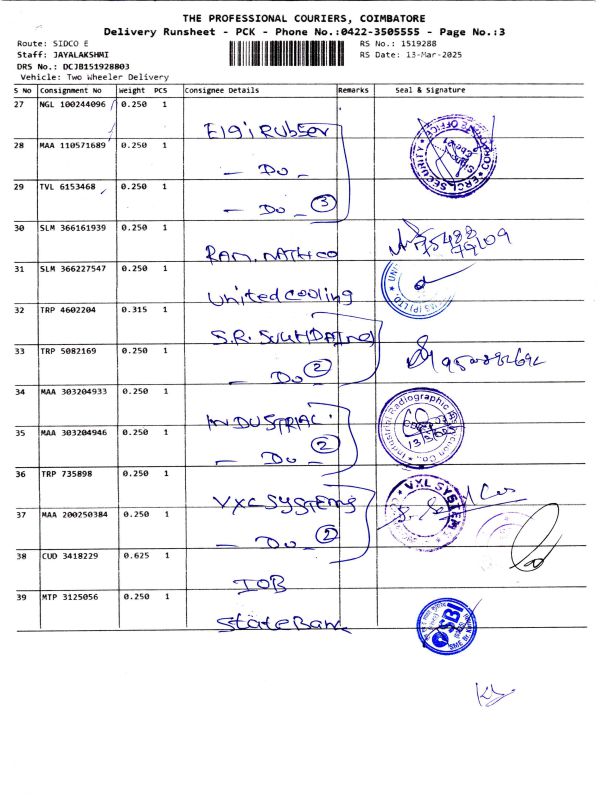 THE PROFESSIONAL COURIERS, COIMBATORE
Delivery Runsheet - PCK - Phone No.:0422-3505555 - Page No.:3
Route: SIDCO E RS No.: 1519288
Staff: JAYALAKSHMI RS Date: 13-Mar-2025
DRS No.: DCJB151928803
Vehicle: Two Wheeler Delivery
S No Consignment No Weight PCS Consignee Details Remarks Seal & Signature
27 NGL 100244096 0.250 1 Elgi Rubber
28 MAA 110571689 0.250 1 - Do -
29 TVL 6153468 0.250 1 - Do - 3
30 SLM 366161939 0.250 1 RAM. NATH CO
31 SLM 366227547 0.250 1 United cooling
32 TRP 4602204 0.315 1 S.R.
33 TRP 5082169 0.250 1 - Do - 2
34 MAA 303204933 0.250 1 INDUSTRIAL
35 MAA 303204946 0.250 1 - Do - 2
36 TRP 735898 0.250 1 VXL SYSTEMS
37 MAA 200250384 0.250 1 - Do - 2
38 CUD 3418229 0.625 1 IOB
39 MTP 3125056 0.250 1 State Bank
ERCL SECURITY
Industrial Radiographic
13/3/
VXL SYSTEM
SBI